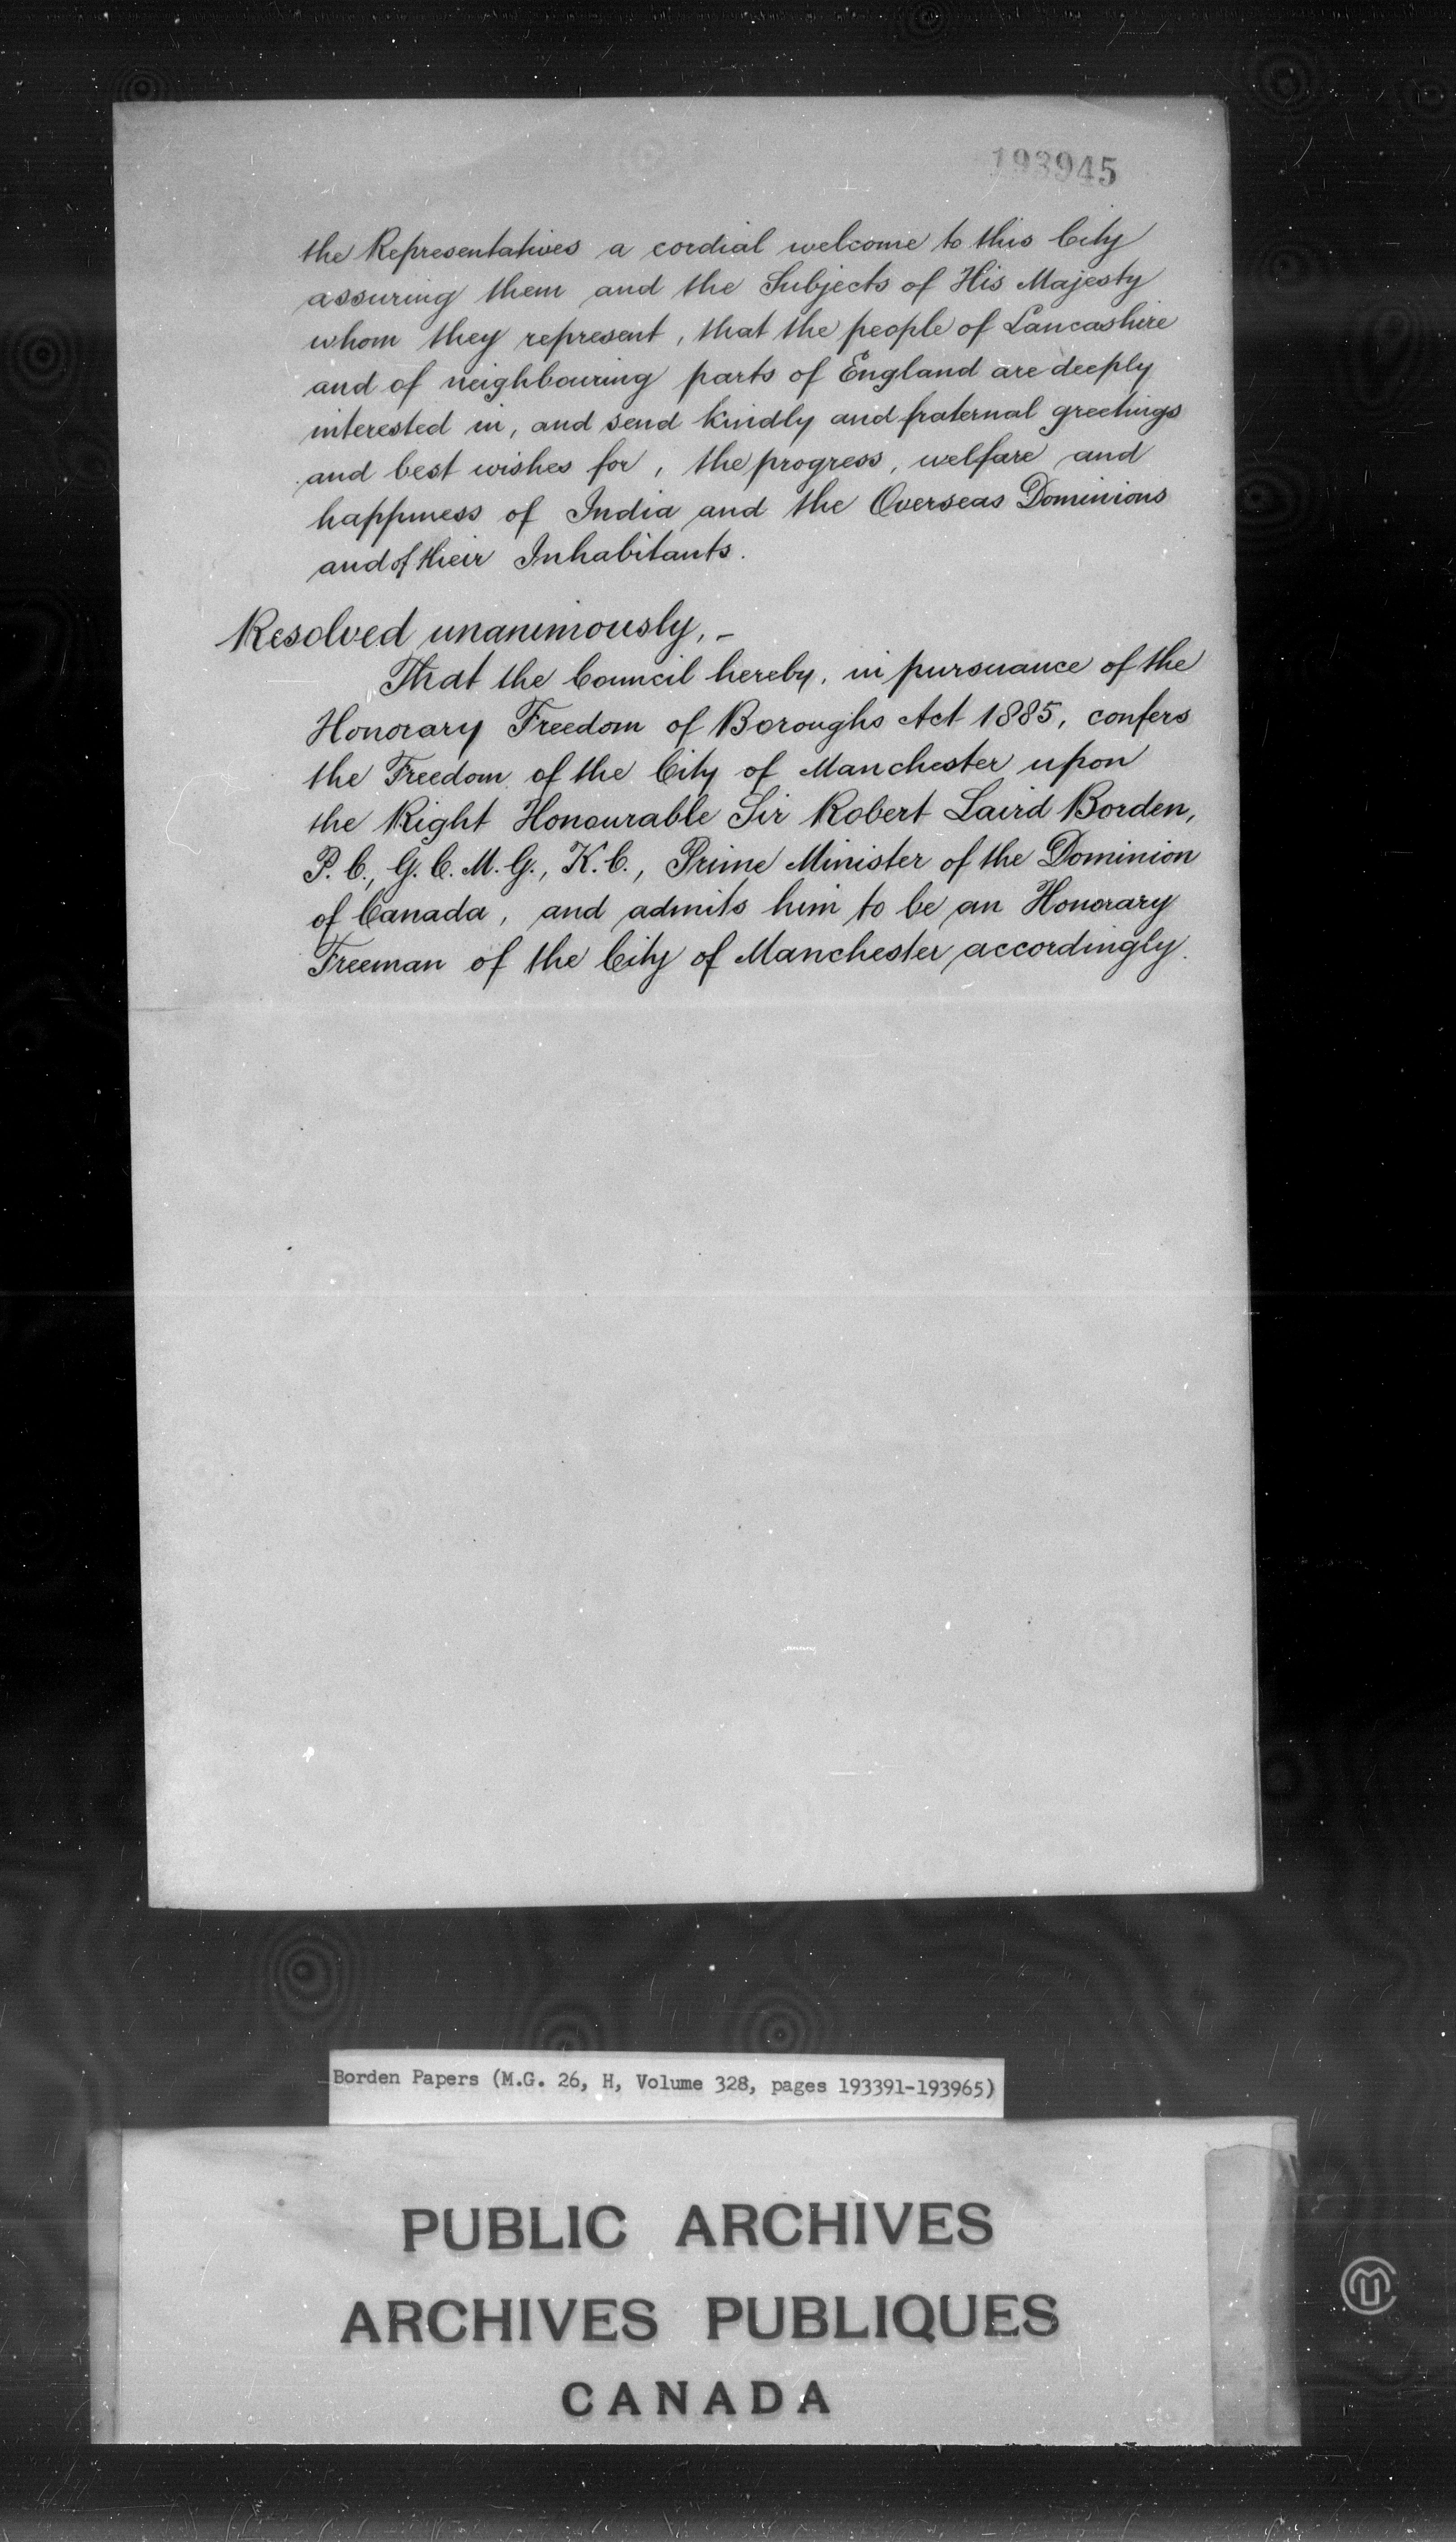 193945
the Representatives a cordial welcome to this City
assuring them and the Subjects of His Majesty
whom they represent, that the people of Lancashire
and of neighbouring parts of England are deeply
interested in, and send kindly and fraternal greetings
and best wishes for, the progress, welfare and
happiness of India and the Overseas Dominions
and of their Inhabitants.
Resolved unanimously, -
That the Council hereby, in pursuance of the
Honorary Freedom of Boroughs Act 1885, confers
the Freedom of the City of Manchester upon
the Right Honourable Sir Robert Laird Borden,
P.C., G.C.M.G., K.C., Prime Minister of the Dominion
of Canada, and admits him to be an Honorary
Freeman of the City of Manchester accordingly.
Borden Papers (M.G. 26, H, Volume 328, pages 193391-193965)
PUBLIC ARCHIVES
ARCHIVES PUBLIQUES
CANADA